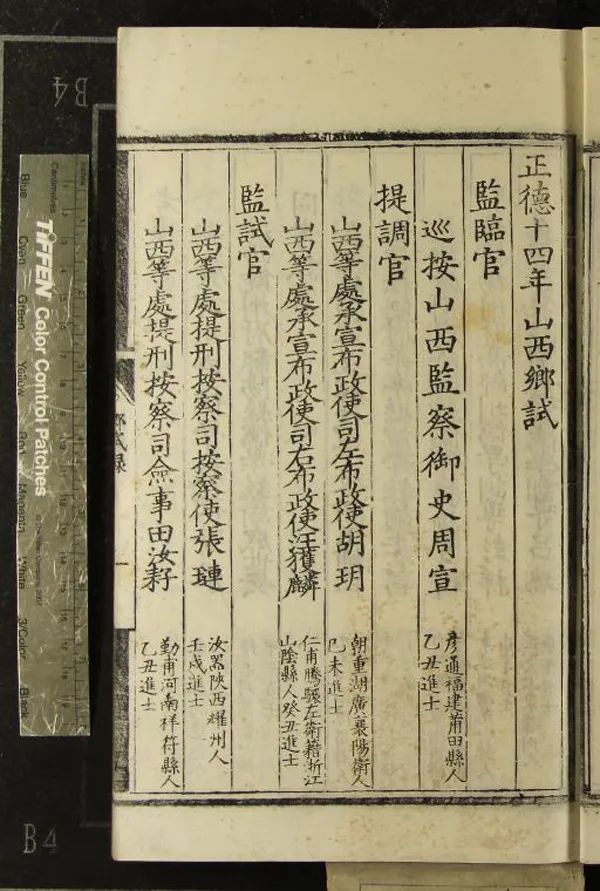 正德十四年山西鄉試
監臨官
巡按山西監察御史周宣
彥通福建莆田縣人
乙丑進士
提調官
山西等處承宣布政使司左布政使胡玥
朝重湖廣襄陽衛人
己未進士
山西等處承宣布政使司右布政使汪獲麟
仁甫騰驤左衛籍浙江
山陰縣人癸丑進士
監試官
山西等處提刑按察司按察使張璉
汝器陝西耀州人
壬戌進士
山西等處提刑按察司僉事田汝耔
勤甫河南祥符縣人
乙丑進士
鄉試錄
一
B4
TIFFEN Color Control Patches
Blue
Cyan
Green
Yellow
Red
Magenta
White
3/Color
Black
B4